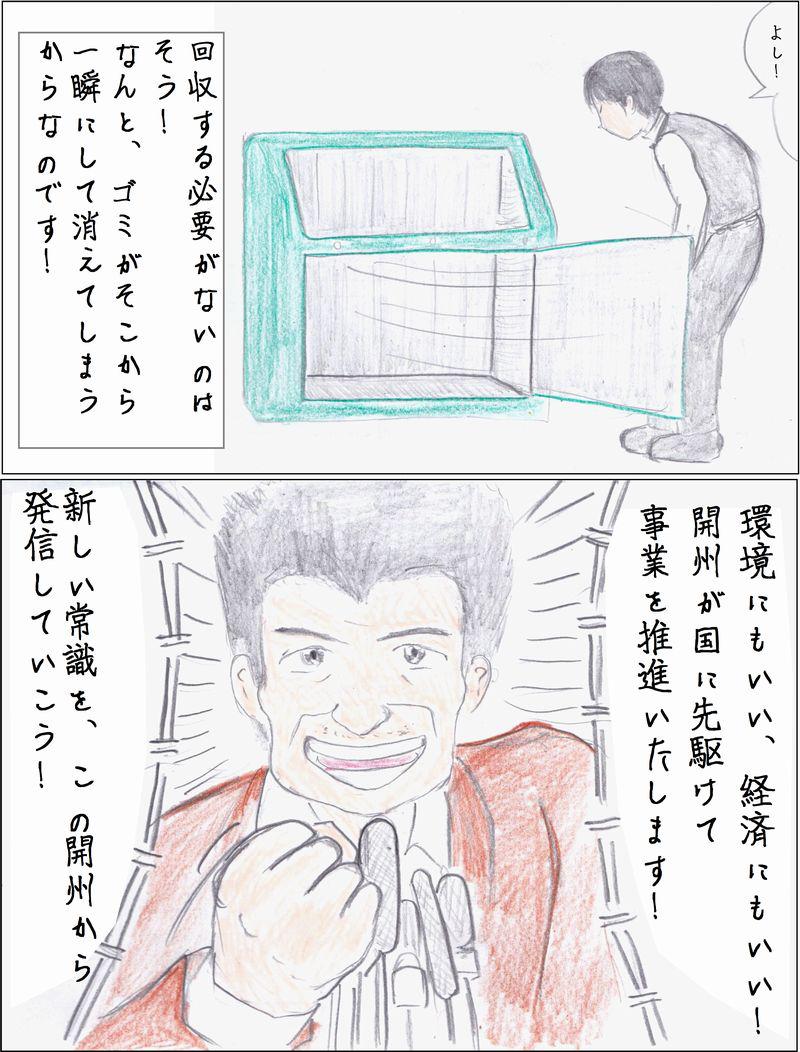 よし！
回収する必要がないのは
そう！
なんと、ゴミがそこから
一瞬にして消えてしまう
からなのです！
環境にもいい、経済にもいい！
開州が国に先駆けて
事業を推進いたします！
新しい常識を、この開州から
発信していこう！